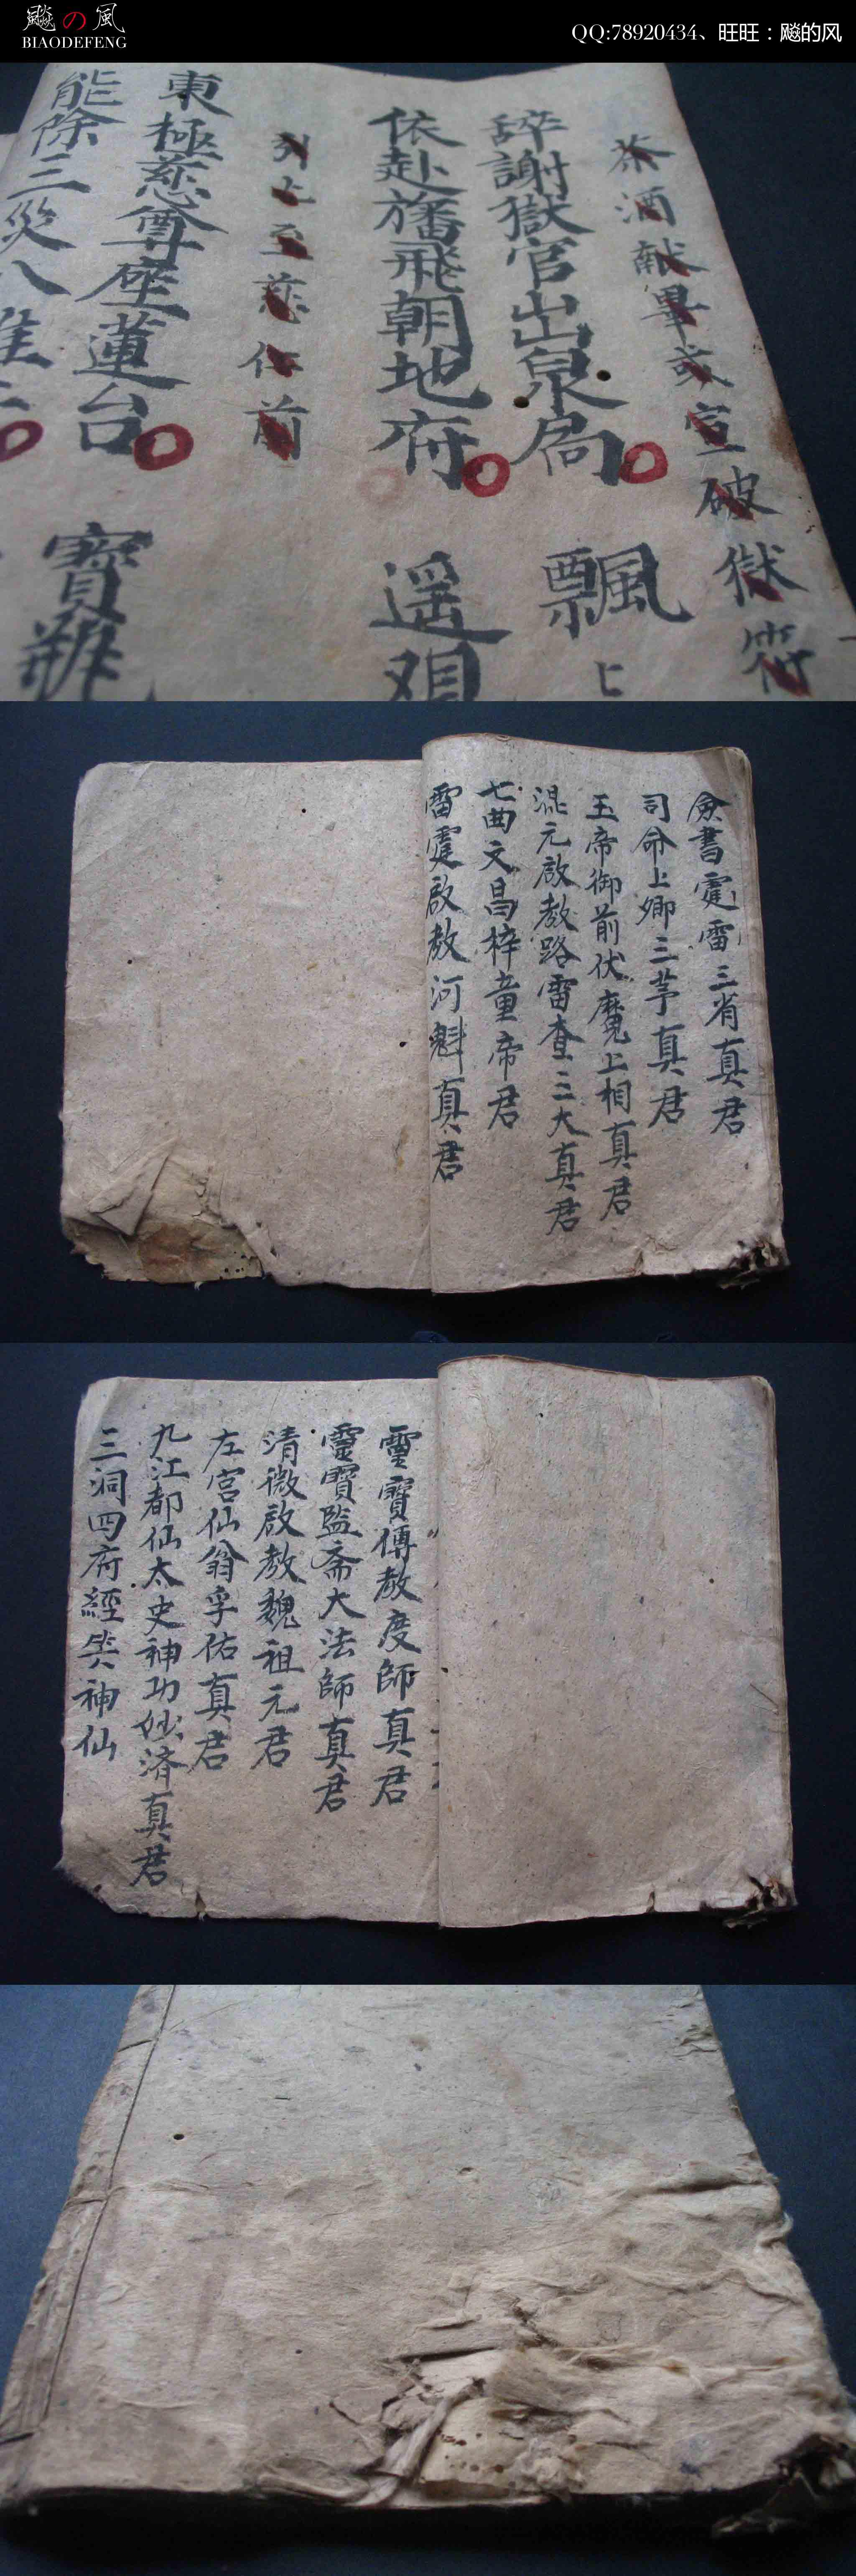 飈の風
BIAODEFENG
QQ:78920434、旺旺：飚的风
茶酒献畢或宣破獄符
辞謝獄官出泉局 飄上
依赴旛飛朝地府 遥
列七至慈仁前
東極慈尊座蓮台 寳
能除三災八
僉書霆雷三省真君
司命上卿三茅真君
玉帝御前伏魔上相真君
混元啟教路雷查三大真君
七曲文昌梓童帝君
雷霆啟教河魁真君
靈寳傳教度師真君
靈寳監斋大法師真君
清微啟教魏祖元君
左宫仙翁孚佑真君
九江都仙太史神功妙済真君
三洞四府經箓神仙